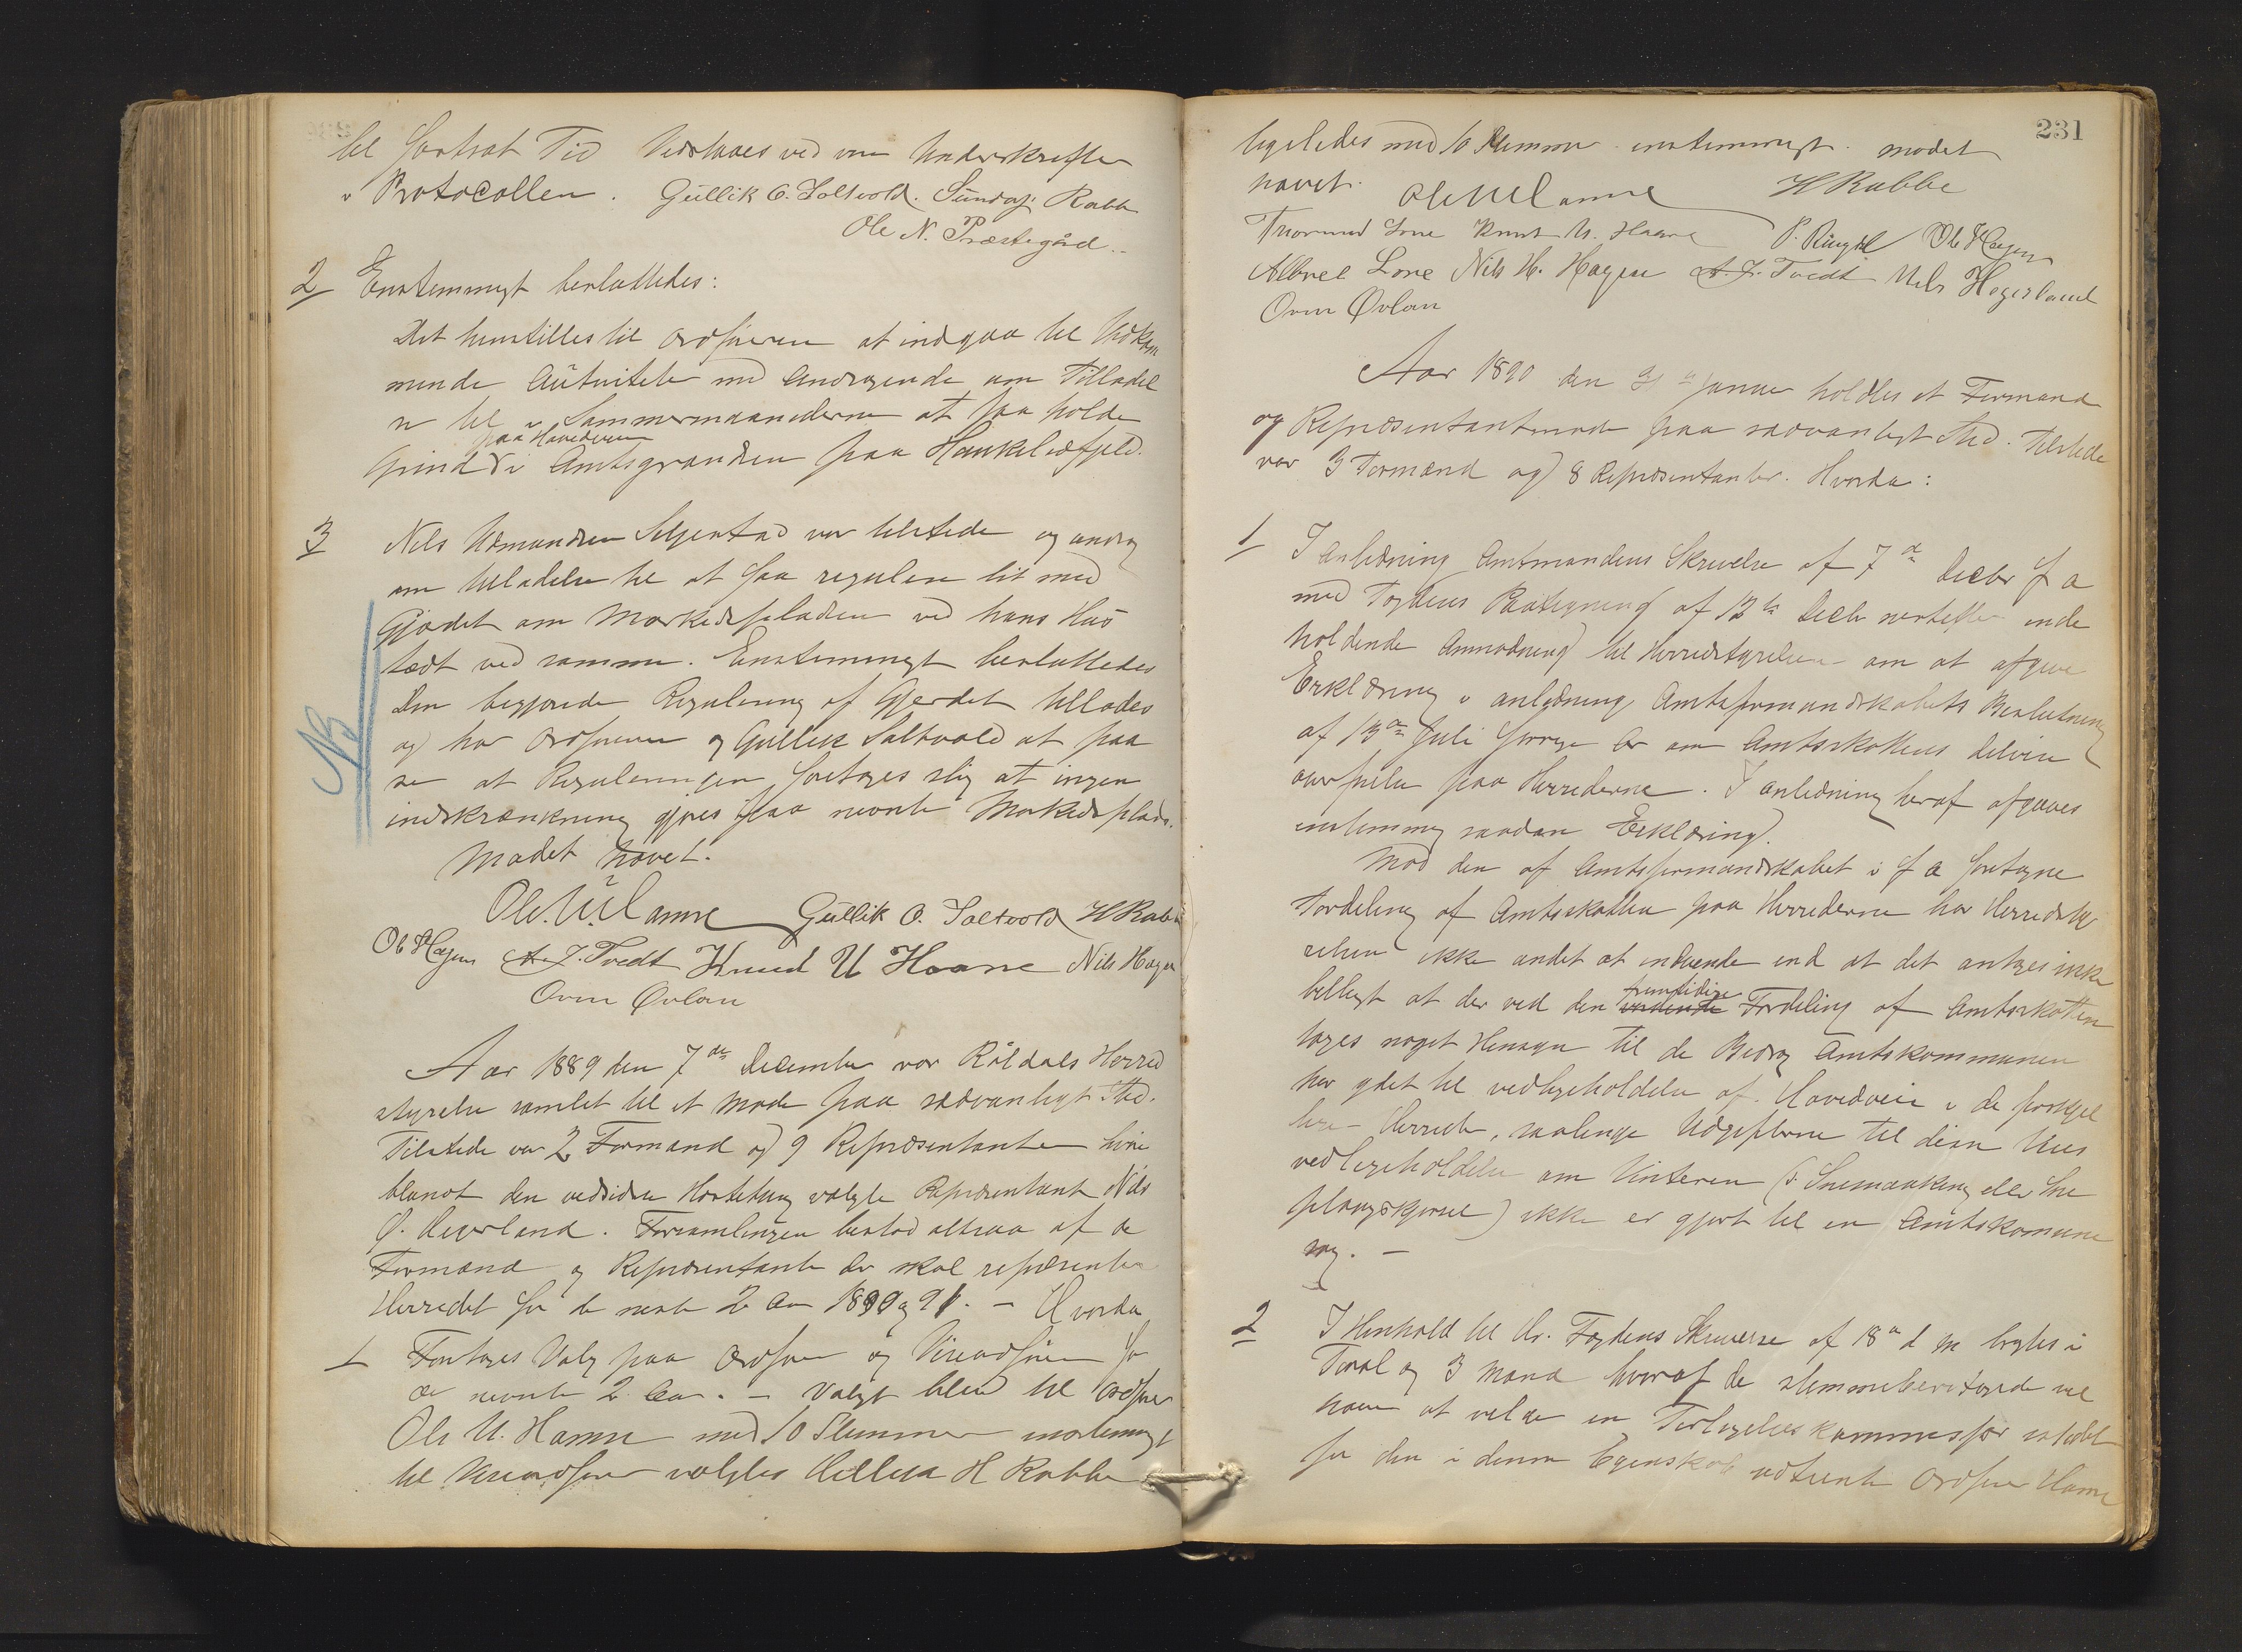 til fortsat Tid Vedtages ved vore Underskrifter
i Protocollen. Gullik O. Saltvold. Rabbe
Ole N. Præstegård
2 Enstemmigt besluttedes:
Det henstilles til Ordføreren at indgaa til Vedkom
mende Autoritete med Andragende om Tilladel
se til i Sommermaanederne at faa holde
paa Hovedveien
Grind i Amtsgrændsen paa Haukelidfjeld.
3 Nils Asmundsen Seljestad var tilstede og androg
om tilladelse til at faa regulere lit med
Gjærdet om Markedspladsen ved hans Hus
tædt ved samme. Enstemmigt besluttedes
Den begjærede Regulering af Gjerdet tillades
og har Ordføreren og Gullik Saltvold at paa
se at Reguleringen foretages slig at ingen
indskrænkning gjøres paa nevnte Markedsplads.
NB
Mødet hævet.
Ole U. Hamre Gullik O. Saltvold H Rabbe
Ole Hagen A. J. Tvedt Knud U Haare Nils Hagen
Oven Øvlan
Aar 1889 den 7de December var Røldals Herred
styrelse samlet til et Møde paa sædvanligt Sted.
Tilstede var 2 Formænd og 9 Repræsentanter hvori
blandt den ved sidste valgte Repræsentant Nils
Ø. Hegerland. Forsamlingen bestod altsaa af de
Formænd og Repræsentanter der skal repræsentere
Herredet for de næste 2 Aar 1890 og 91. – Hvorda
1 Foretoges Valg paa Ordfører og Viceordfører for
de nevnte 2 Aar. – Valgt blev til Ordfører
Ole U. Hamre med 10 Stemmer enstemmigt
til Viceordfører valgtes Helleik H Rabbe
231
ligeledes med 10 Stemmer enstemmigt. Mødet
hævet. Ole U Hamre H Rabbe
Thormod Lone Knut U. Haare P. Ringdal Ole Hagen
Albret Lone Nils H. Hagen A. J. Tvedt Nels Hegerland
Oven Øvlan
Aar 1890 den Januar holdtes et Formand
og Repræsentantmøde paa sædvanligt Sted. Tilstede
var 3 Formænd og 8 Repræsentanter. Hvorda:
1 I anledning Amtmandens Skrivelse af 7de Decbr f a
med Fogdens Paategning af 12te Decbr næstefter inde
holdende Anmodning til Herredstyrelsen om at afgive
Erklæring i anledning Amtsformandskabets Beslutning
af 13de Juli forrige Aar om Amtsskattens
paa Herrederne. I anledning heraf afgaves
enstemmig saadan Erklæring.
Mod den af Amtsformandskabet i f a foretagne
Fordeling af Amtsskatten paa Herrederne har Herredsty
relsen ikke andet at indvende end at det antages ikke
fremtidige
billigt at der ved den Fordeling af Amtsskatten
tages noget Hensyn til de Bidrag Amtskommunen
har ydet til vedligeholdelse af Hovedveie i de forskjel
lige Herreder, saalenge Udgifterne til disse Veies
vedligeholdelse om Vinteren (: Snemaaking eller Sne
plougskjørsel) ikke er gjort til en Amtskomune
sag. –
2 I Henhold til Hr. Fogdens Skrivelse af 18de d M bragtes i
Forsl og 3 Mænd hvoraf de stemmeberettigede vil
have at velde en Forligelseskommissær istedet
for den i denne Egenskab udtrædte Ordfører Hamre